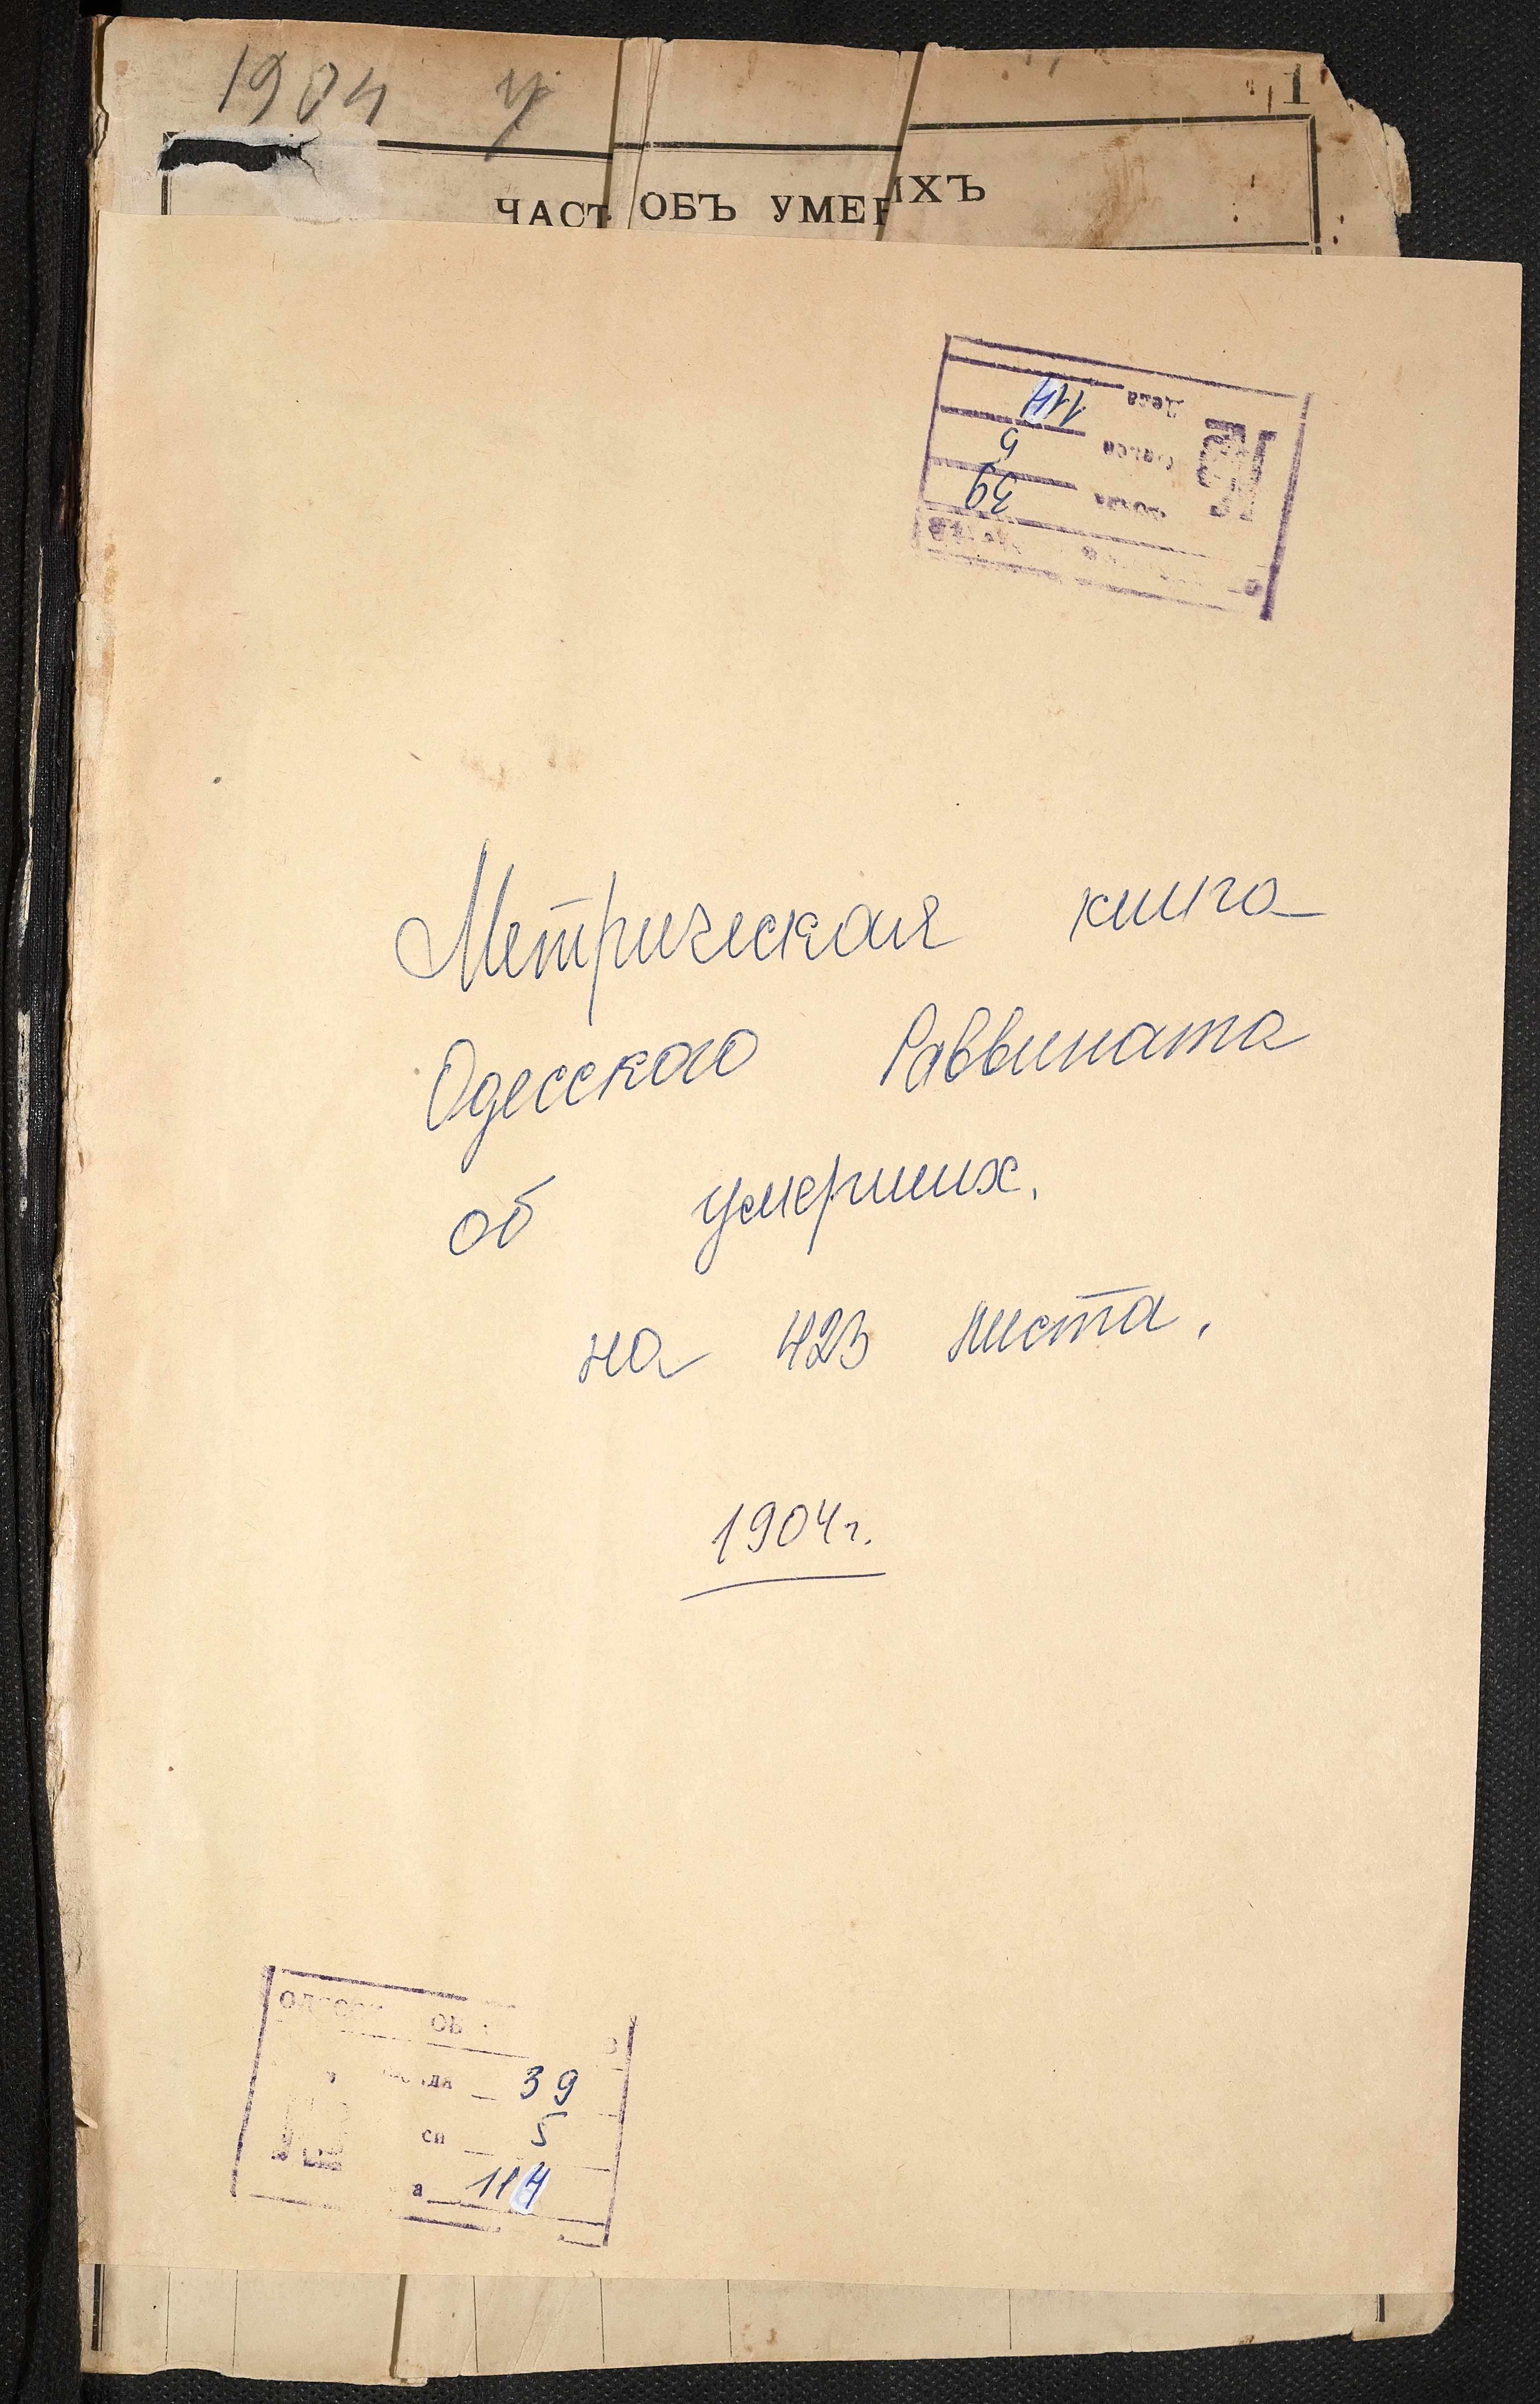 1904 У
1
ЧАСТ ОБЪ УМЕР ИХЪ
Дела 114
5
Фонда 39
Метрическая книга
Одесского Раввината
об умерших.
на 423 листа.
1904г.
39
5
114